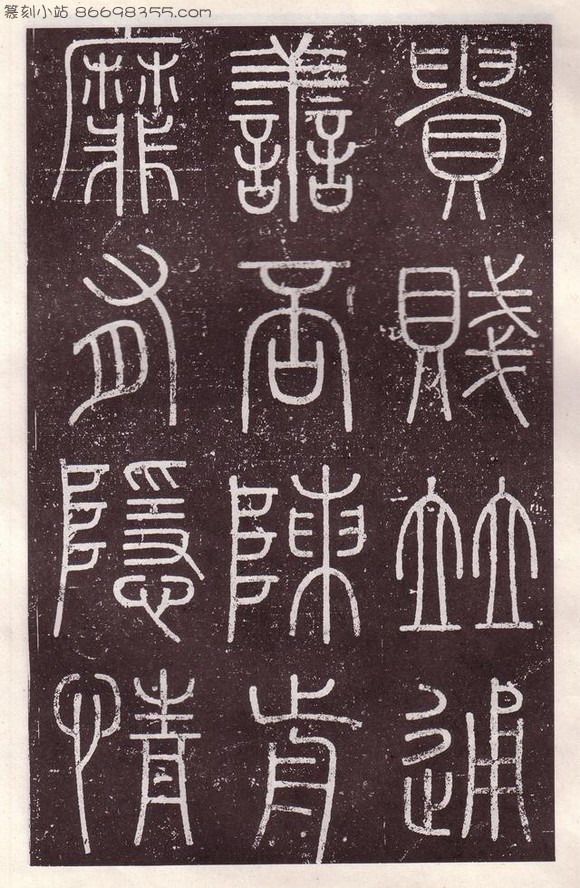 篆刻小站 86698355.com
貴賤竝通
譱否陳歬
靡有隱情